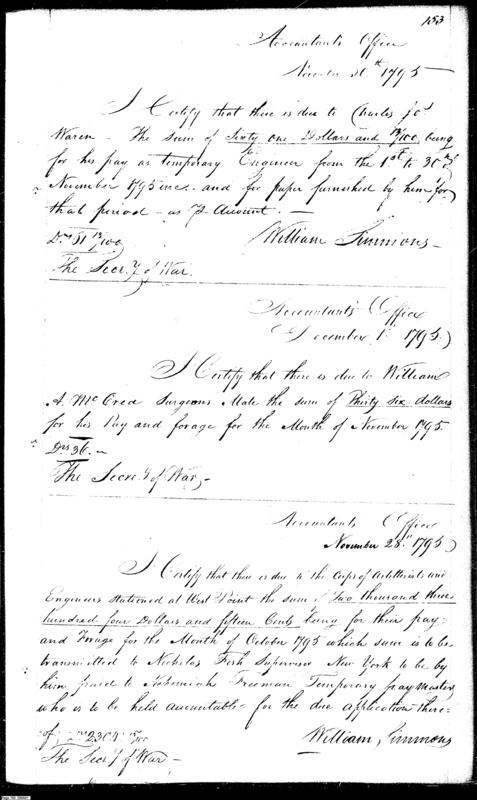 153
Accountants Office
November 30th 1795
I Certify that there is due to Charles Jos
Waren - The sum of Sixty one Dollars and 13/100, being
for his pay as temporary Engineer from the 1st to 30th
November 1795 incs. and for paper furnished by him for
that period - as Account. -
13/100
William Simmons -
The Secrey of War.
Accountants Office
December 1st 1795
I Certify that there is due to William
A. McCrea Surgeons Mate the sum of Thirty six dollars
for his Pay and forage for the Month of November 1795.
Drs 36. -
The Secrey of War, -
Accountants Office
November 28th 1795
I Certify that there is due to the Corps of Artillerists and
Engineers stationed at West Point the sum of Two thousand three
hundred four Dollars and fifteen Cents being for their pay
and Forage for the Month of October 1795 which sum is to be
transmitted to Nicholas Fish Supervisor New York to be by
him paid to Nehemiah Freeman Temporary paymaster,
who is to be held accountable - for the due application there=
of, 2304 15/100
William Simmons
The Secry of War -